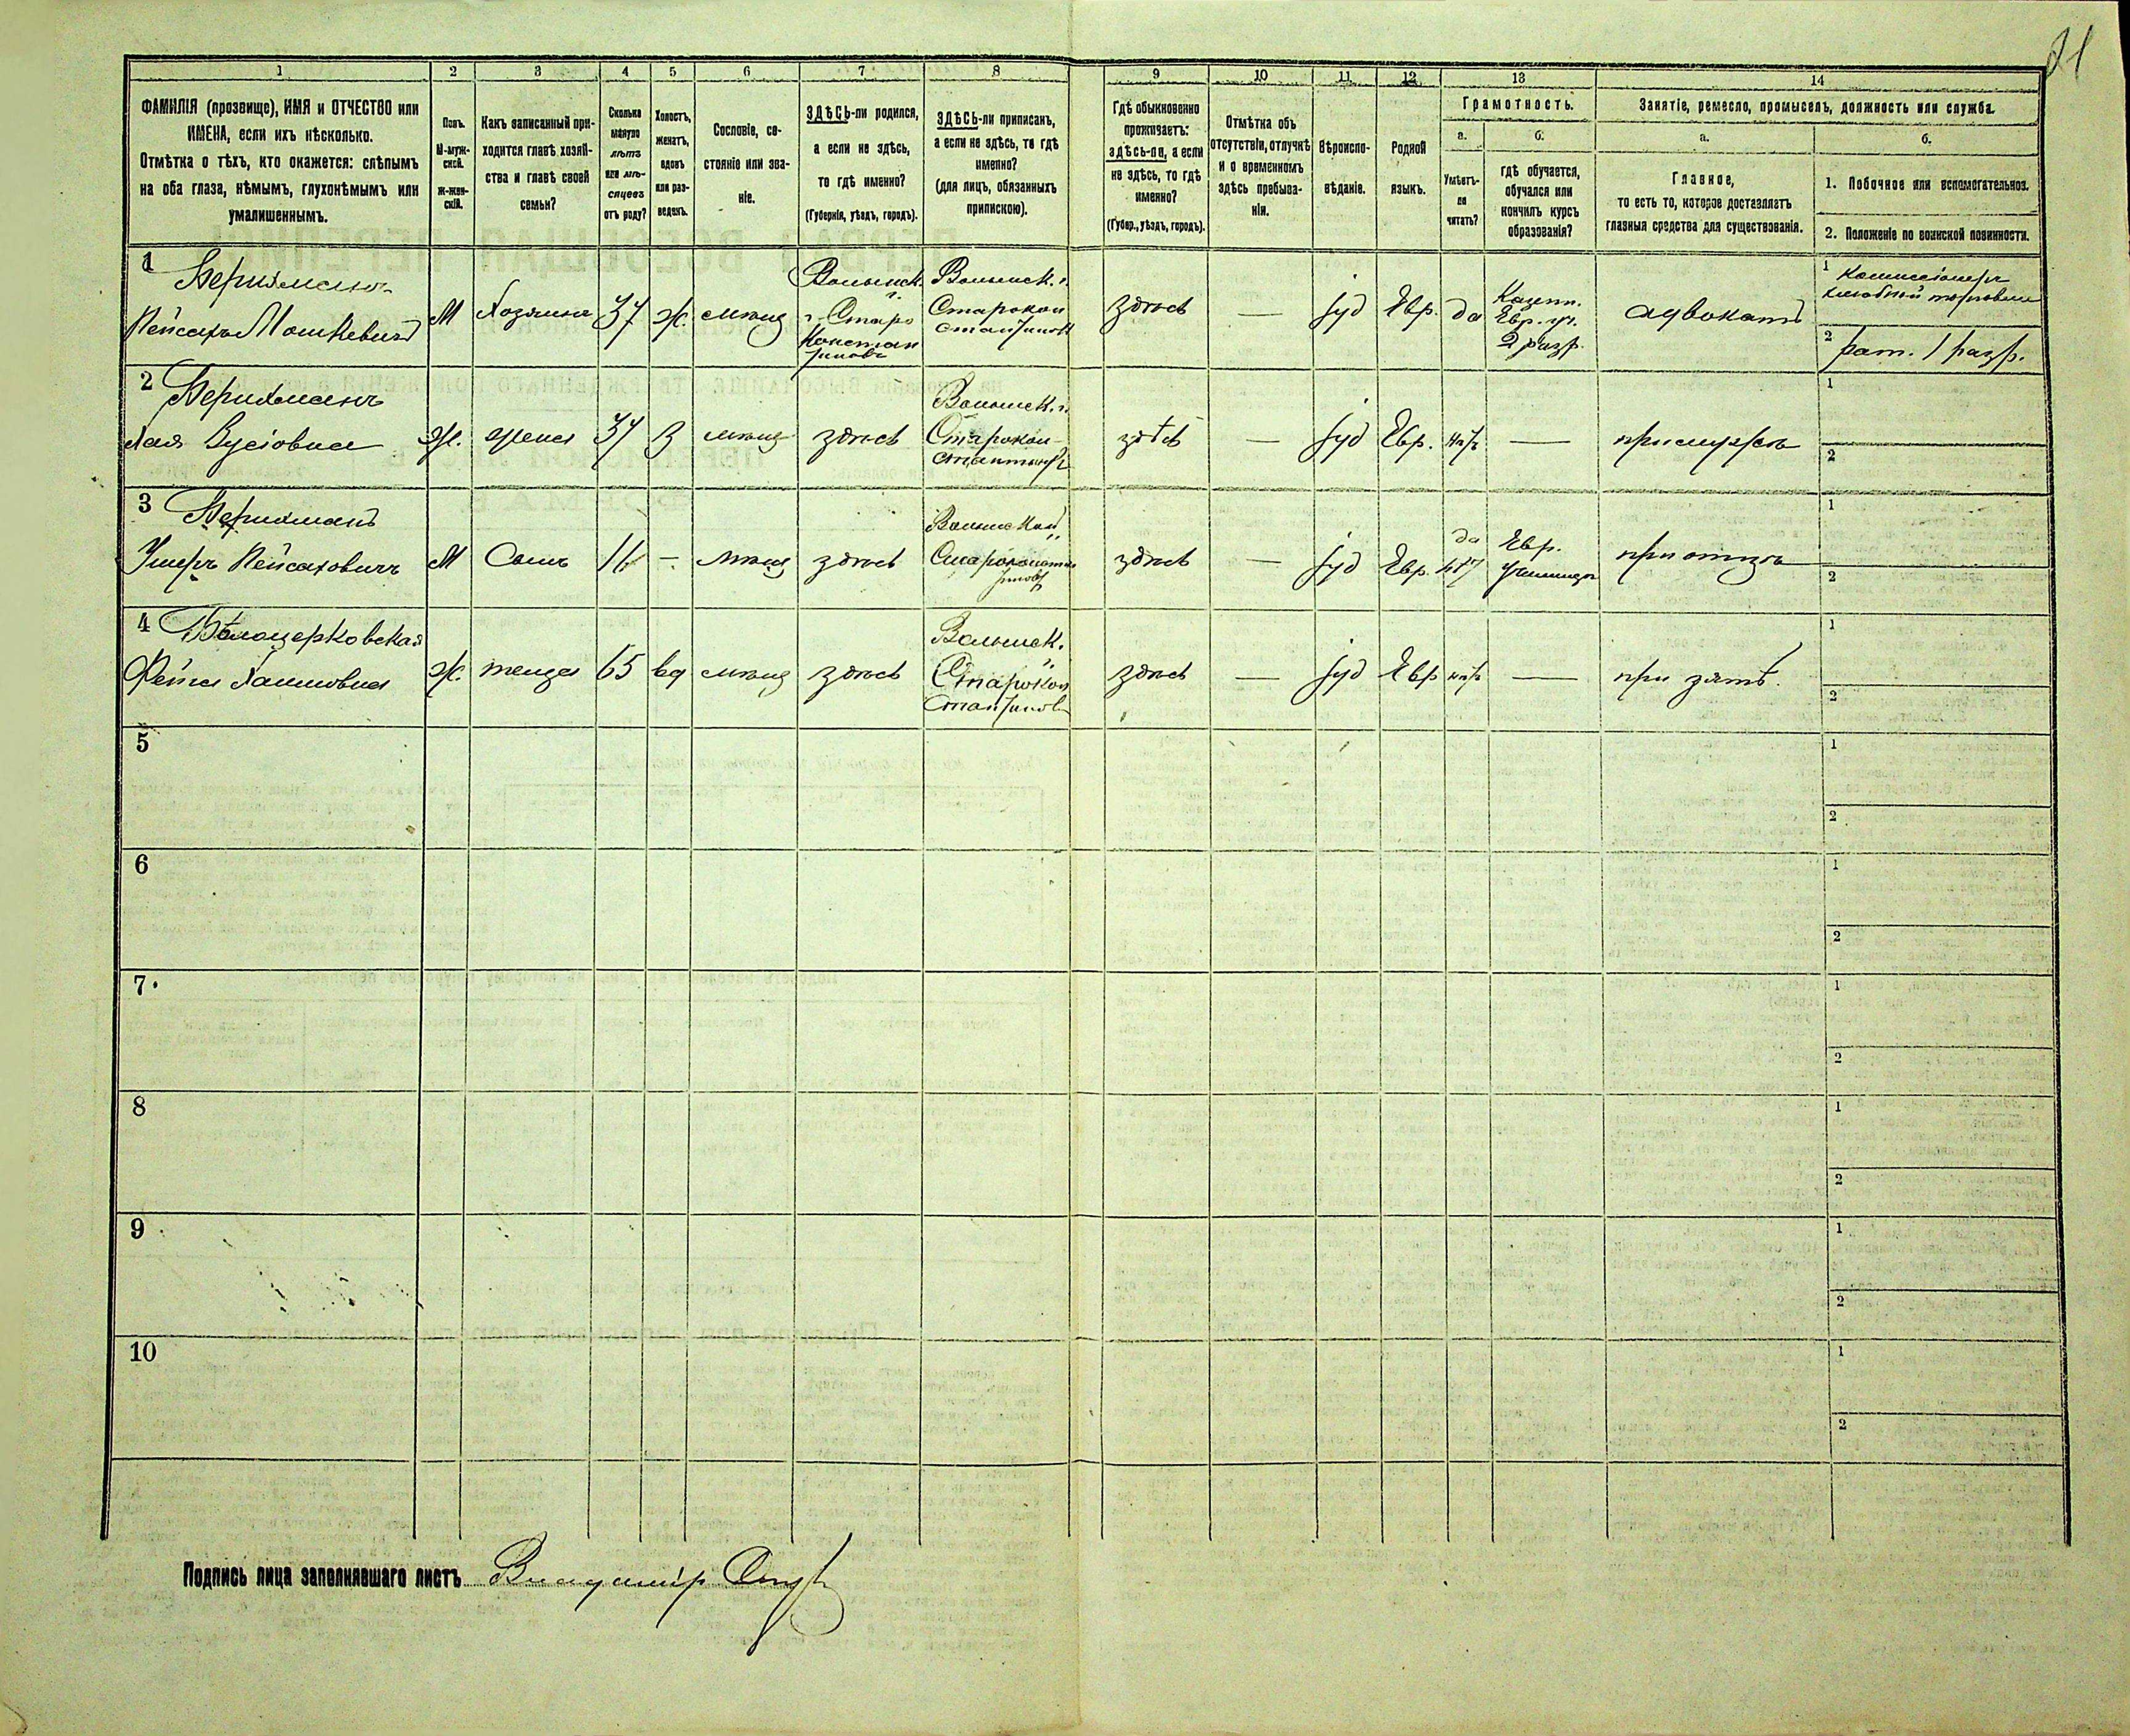 21
1 2 3 4 5 6 7 8 9 10 11 12 13 14
ФАМИЛІЯ (прозвище), ИМЯ и ОТЧЕСТВО или
ИМЕНА, если ихъ нѣсколько.
Отмѣтка о тѣхъ, кто окажется: слѣпымъ
на оба глаза, нѣмымъ, глухонѣмымъ или
умалишеннымъ.
Полъ.
М-муж-
ской.
Ж-жен-
скій.
Какъ записанный при-
ходится главѣ хозяй-
ства и главѣ своей
семьи?
Сколько
минуло
лѣтъ
или мѣ-
сяцевъ
отъ роду?
Холостъ,
женатъ,
вдовъ
или раз-
веденъ.
Сословіе, со-
стояніе или зва-
ніе.
ЗДѢСЬ-ли родился,
а если не здѣсь,
то гдѣ именно?
(Губернія, уѣздъ, городъ).
ЗДѢСЬ-ли приписанъ,
а если не здѣсь, то гдѣ
именно?
(для лицъ, обязанныхъ
припискою).
Гдѣ обыкновенно
проживаетъ:
здѣсь-ли, а если
не здѣсь, то гдѣ
именно?
(Губер., уѣздъ, городъ).
Отмѣтка объ
отсутствіи, отлучкѣ
и о временномъ
здѣсь пребыва-
ніи.
Вѣроиспо-
вѣданіе.
Родной
языкъ.
Грамотность.
а.
Умѣетъ-
ли
читать?
б.
гдѣ обучается,
обучался или
кончилъ курсъ
образованія?
Занятіе, ремесло, промыселъ, должность или служба.
а.
Главное,
то есть то, которое доставляетъ
главныя средства для существованія.
б.
1. Побочное или вспомогательное.
2. Положеніе по воинской повинности.
1
Пейсахъ Мошковичъ
М
Хозяинъ
37
ж.
мѣщ
Волынск.
г. Старо
Констан
тиновъ
Волынск. г.
Старокон
стантинов
здѣсь
—
іуд
Евр.
да
Казен.
Евр. уч.
2 разр.
адвокатъ
1 Коммиссіонеръ
хлѣбной торговли
2 рат. 1 разр.
2
Хая
Ж.
жена
37
З
мѣщ
здѣсь
Волынск. г.
Старокон-
стантинов
здѣсь
—
іуд
Евр.
нѣтъ
—
при мужѣ
1
2
3
Ушеръ Пейсаховичъ
М
Сынъ
—
мѣщ
здѣсь
Волынской
Староконстан
тинов
здѣсь
—
іуд
Евр.
да
Евр.
Училище
при отцѣ
1
2
4 Бѣлоцерковская
Фейга Хаимовна
Ж.
теща
65
вд
мѣщ
здѣсь
Волынск.
Старокон
стантинов
здѣсь
—
іуд
Евр
нѣтъ
—
при зятѣ.
1
2
5
1
2
6
1
2
7
1
2
8
1
2
9
1
2
10
1
2
Подпись лица заполнявшаго листъ Владиміръ